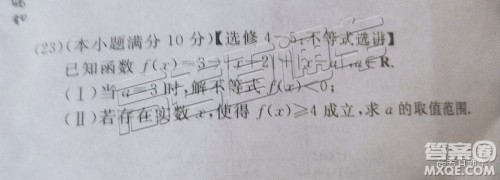 (23)(本小题满分10分)【选修4-5:不等式选讲】
已知函数 f(x)=3-|x+2|+|x-a|,a∈R.
(Ⅰ)当 a=3 时,解不等式 f(x)<0;
(Ⅱ)若存在实数 x,使得 f(x)≥4 成立,求 a 的取值范围.